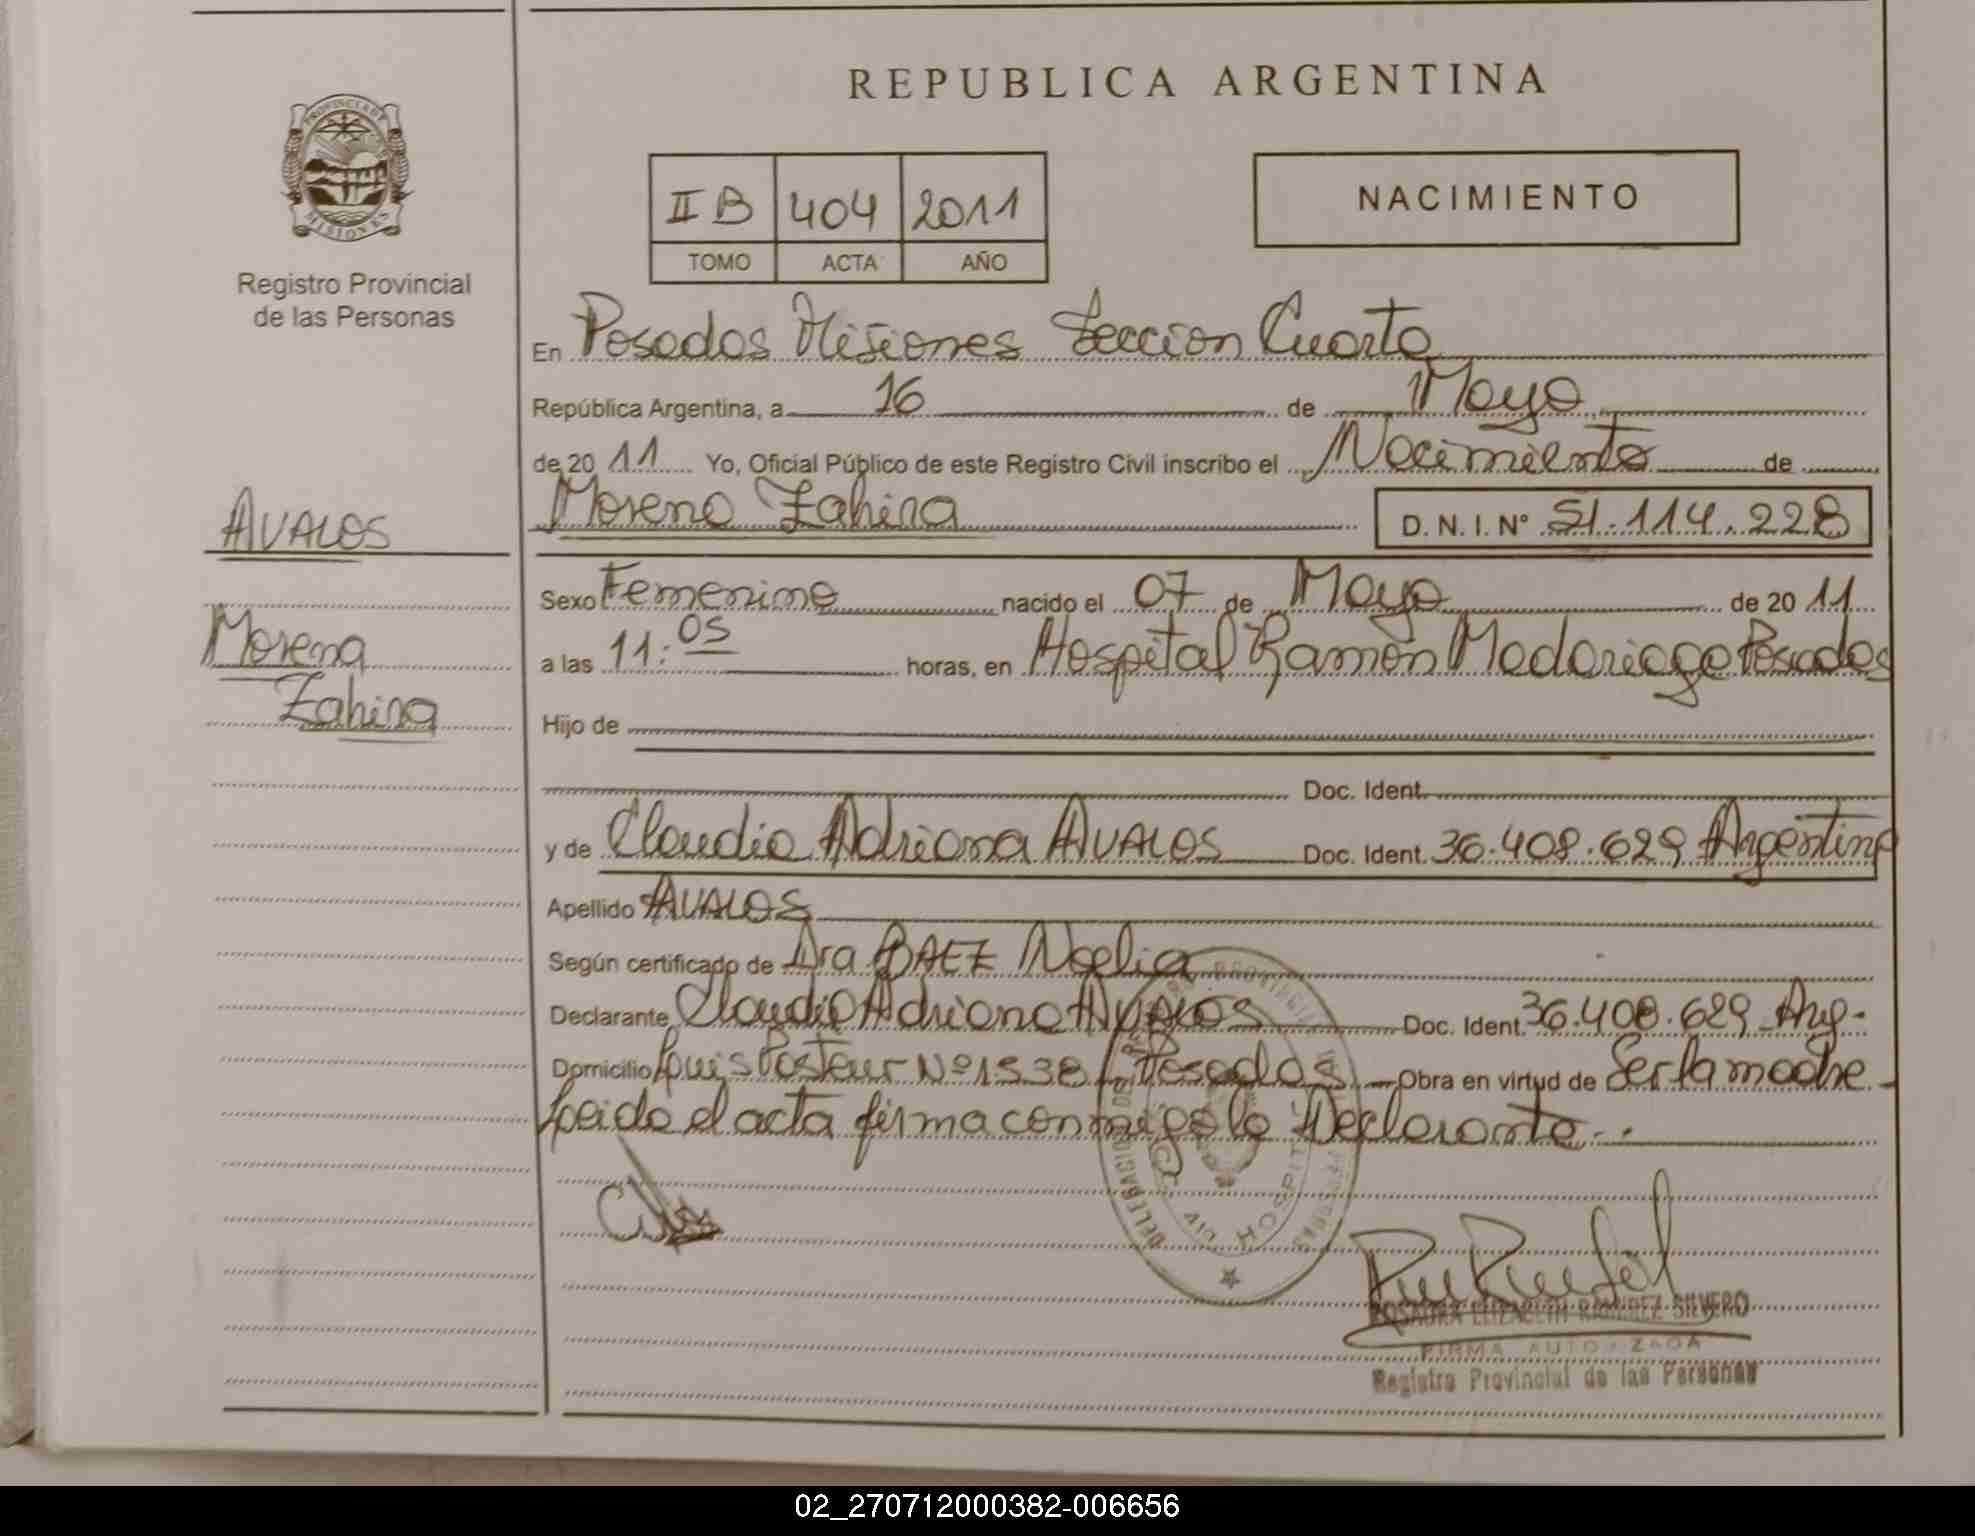 REPUBLICA ARGENTINA
PROVINCIA DE MISIONES
Registro Provincial
de las Personas
II B 404 2011
TOMO ACTA AÑO
NACIMIENTO
En Posadas Misiones Seccion Cuarta
República Argentina, a 16 de Mayo
de 20 11 Yo, Oficial Público de este Registro Civil inscribo el Nacimiento de
AVALOS
Morena Zahira D. N. I. Nº 51.114.228
Sexo Femenino nacido el 07 de Mayo de 20 11
Morena
a las 11:05 horas, en Hospital Ramon Madariaga Posadas
Zahira
Hijo de
Doc. Ident.
y de Claudia Adriana AVALOS Doc. Ident. 36.408.629 Argentina
Apellido AVALOS
Según certificado de Dra BAEZ Noelia
Declarante Claudia Adriana AVALOS Doc. Ident. 36.408.629 Arg.
Domicilio Luis Pasteur Nº 1538 Posadas Obra en virtud de Ser la madre
Leida el acta firma conmigo la Declarante
HOSPITAL
ROSAURA ELIZABETH RAMIREZ SILVERO
FIRMA AUTORIZADA
Registro Provincial de las Personas
02_270712000382-006656